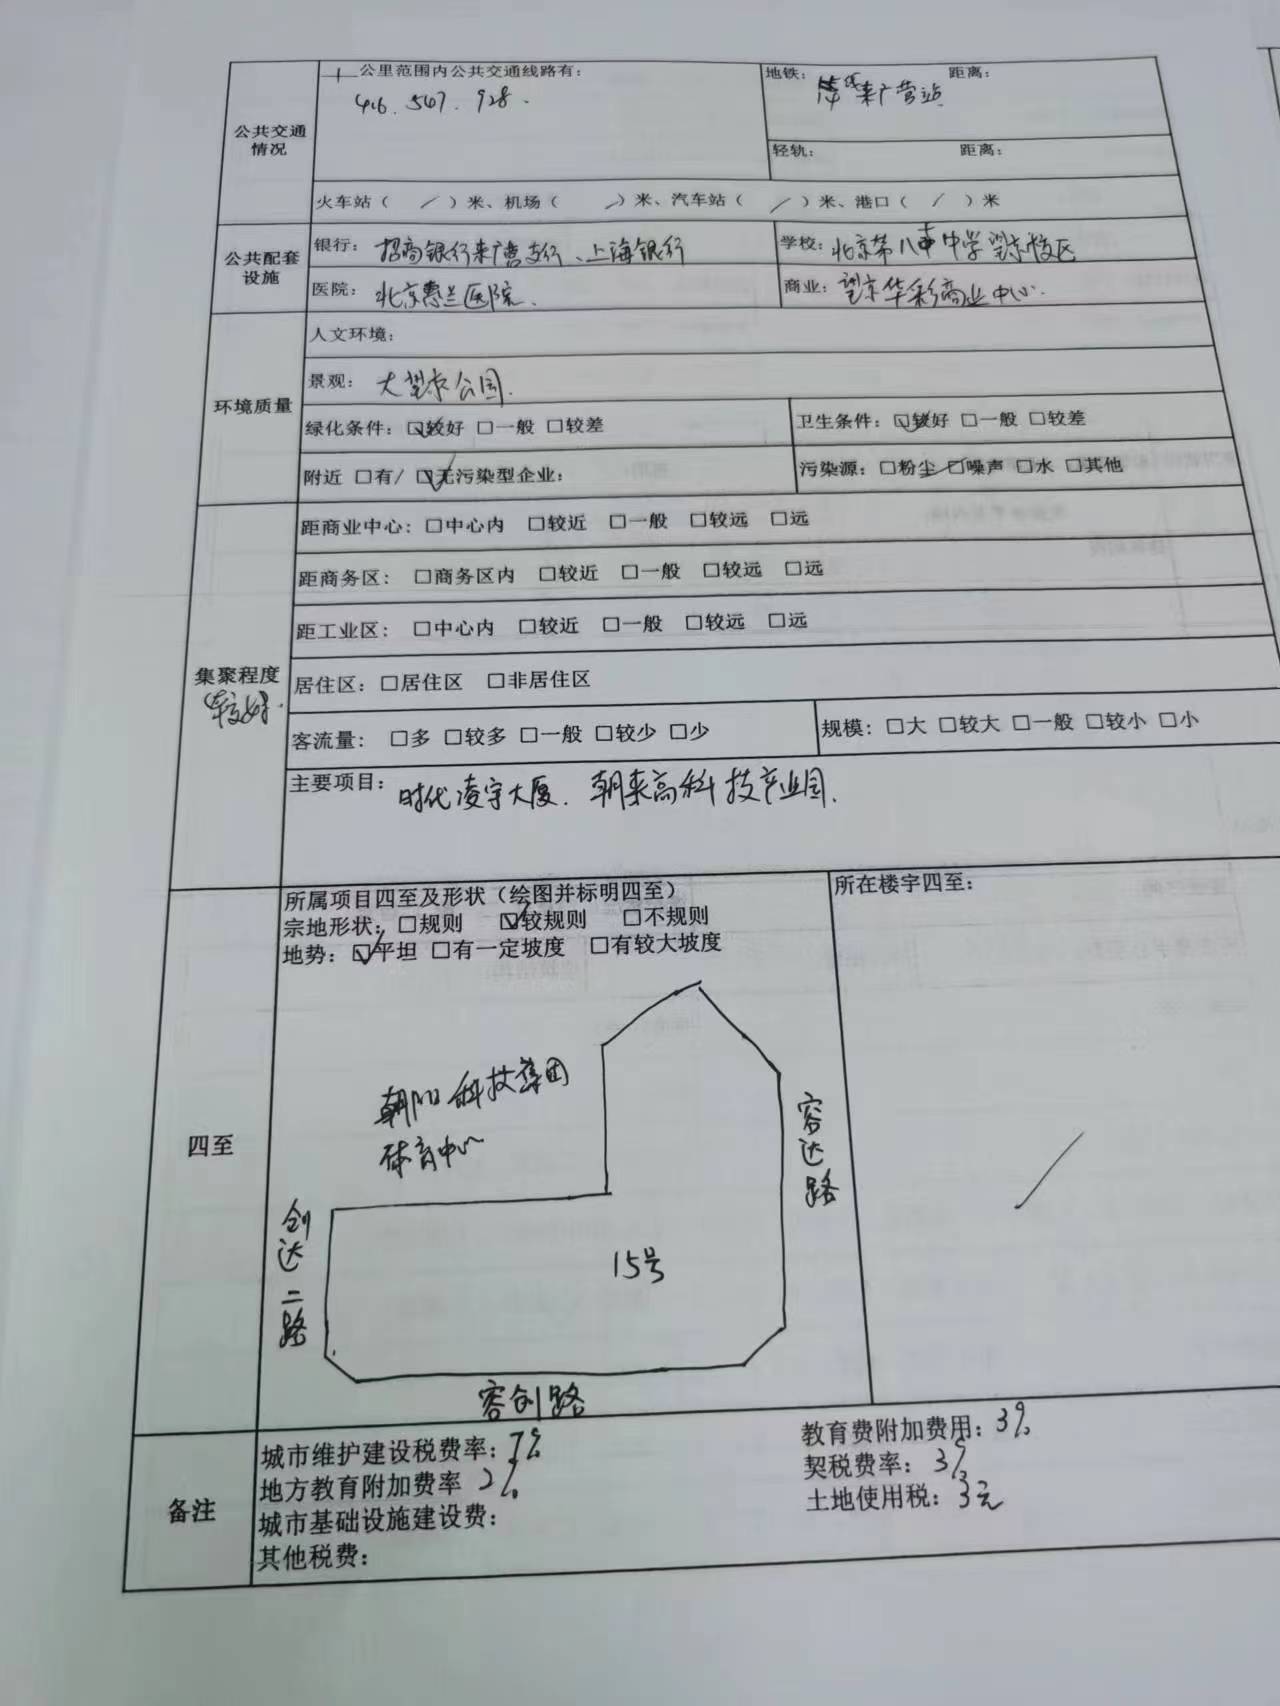 公共交通情况
一 公里范围内公共交通线路有:
416. 547. 928.
地铁: 来广营站 距离:
轻轨: 距离:
火车站( / )米、机场( / )米、汽车站( / )米、港口( / )米
公共配套设施
银行: 招商银行来广营支行、上海银行
学校: 北京第八中学望京校区
医院: 北京惠兰医院.
商业: 望京华彩商业中心.
环境质量
人文环境:
景观: 大望京公园.
绿化条件: ☑较好 □一般 □较差
卫生条件: ☑较好 □一般 □较差
附近 □有/ ☑无污染型企业:
污染源: □粉尘 □噪声 □水 □其他
集聚程度
较好.
距商业中心: □中心内 □较近 □一般 □较远 □远
距商务区: □商务区内 □较近 □一般 □较远 □远
距工业区: □中心内 □较近 □一般 □较远 □远
居住区: □居住区 □非居住区
客流量: □多 □较多 □一般 □较少 □少
规模: □大 □较大 □一般 □较小 □小
主要项目: 时代凌宇大厦. 朝来高科技产业园.
四至
所属项目四至及形状(绘图并标明四至)
宗地形状: □规则 ☑较规则 □不规则
地势: ☑平坦 □有一定坡度 □有较大坡度
所在楼宇四至:
/
朝阳科技集团
体育中心
容达路
创达二路
15号
容创路
备注
城市维护建设税费率: 7%
教育费附加费用: 3%
地方教育附加费率 2%
契税费率: 3%
城市基础设施建设费:
土地使用税: 3元
其他税费: